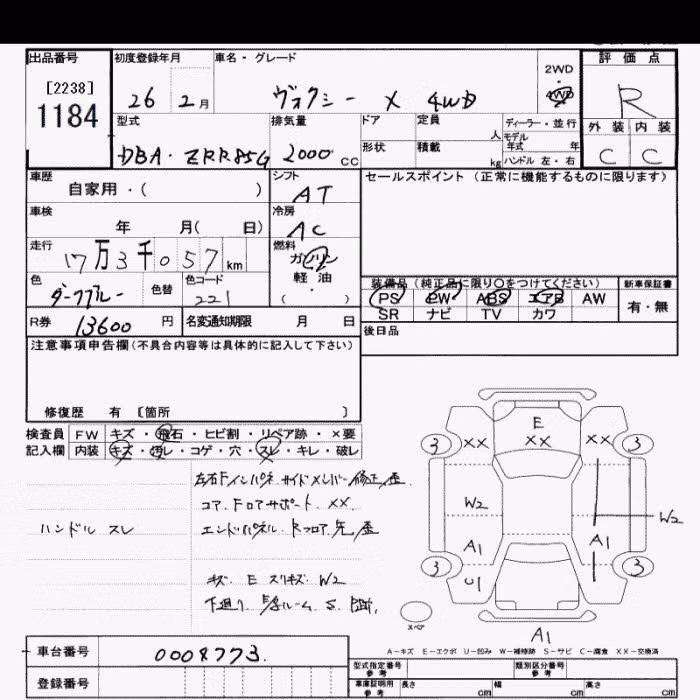 出品番号 初度登録年月 車名・グレード 評価点
[2238]
1184
26 2月 ヴォクシー X 4WD
2WD
4WD
R
型式 排気量 ドア 定員 人 ディーラー・並行
モデル
年式 年
外装 内装
DBA・ZRR85G 2000cc 形状 積載 kg ハンドル 左・右 C C
車歴 シフト セールスポイント(正常に機能するものに限ります)
自家用・( ) AT
車検 冷房
年 月( 日) AC
走行 燃料
17万3千057km ガソリン
軽油
( )
色 色替 色コード
ダークブルー 221
装備品(純正品に限り○をつけてください) 新車保証書
PS PW ABS エアB AW 有・無
SR ナビ TV カワ
R券 13600円 名変通知期限 月 日 後日品
注意事項申告欄(不具合内容等は具体的に記入して下さい)
修復歴 有 〔箇所 〕
検査員 FW キズ・飛石・ヒビ割・リペア跡・×要
記入欄 内装 キズ・汚レ・コゲ・穴・スレ・キレ・破レ
左右Fインパネ サイドメンバー修正歪
コア.Fロアサポート XX.
ハンドル スレ エンドパネル. Rフロア先歪
キズ E スリキズ W2
下廻り
E
XX XX XX
3 3
W2 W2
A1 A1
3 U1 3
スペア A1
A−キズ E−エクボ U−凹み W−補修跡 S−サビ C−腐食 XX−交換済
車台番号 0008773.
登録番号
型式指定番号
参考
類別区分番号
参考
車庫証明用
参考
長さ cm 幅 cm 高さ cm